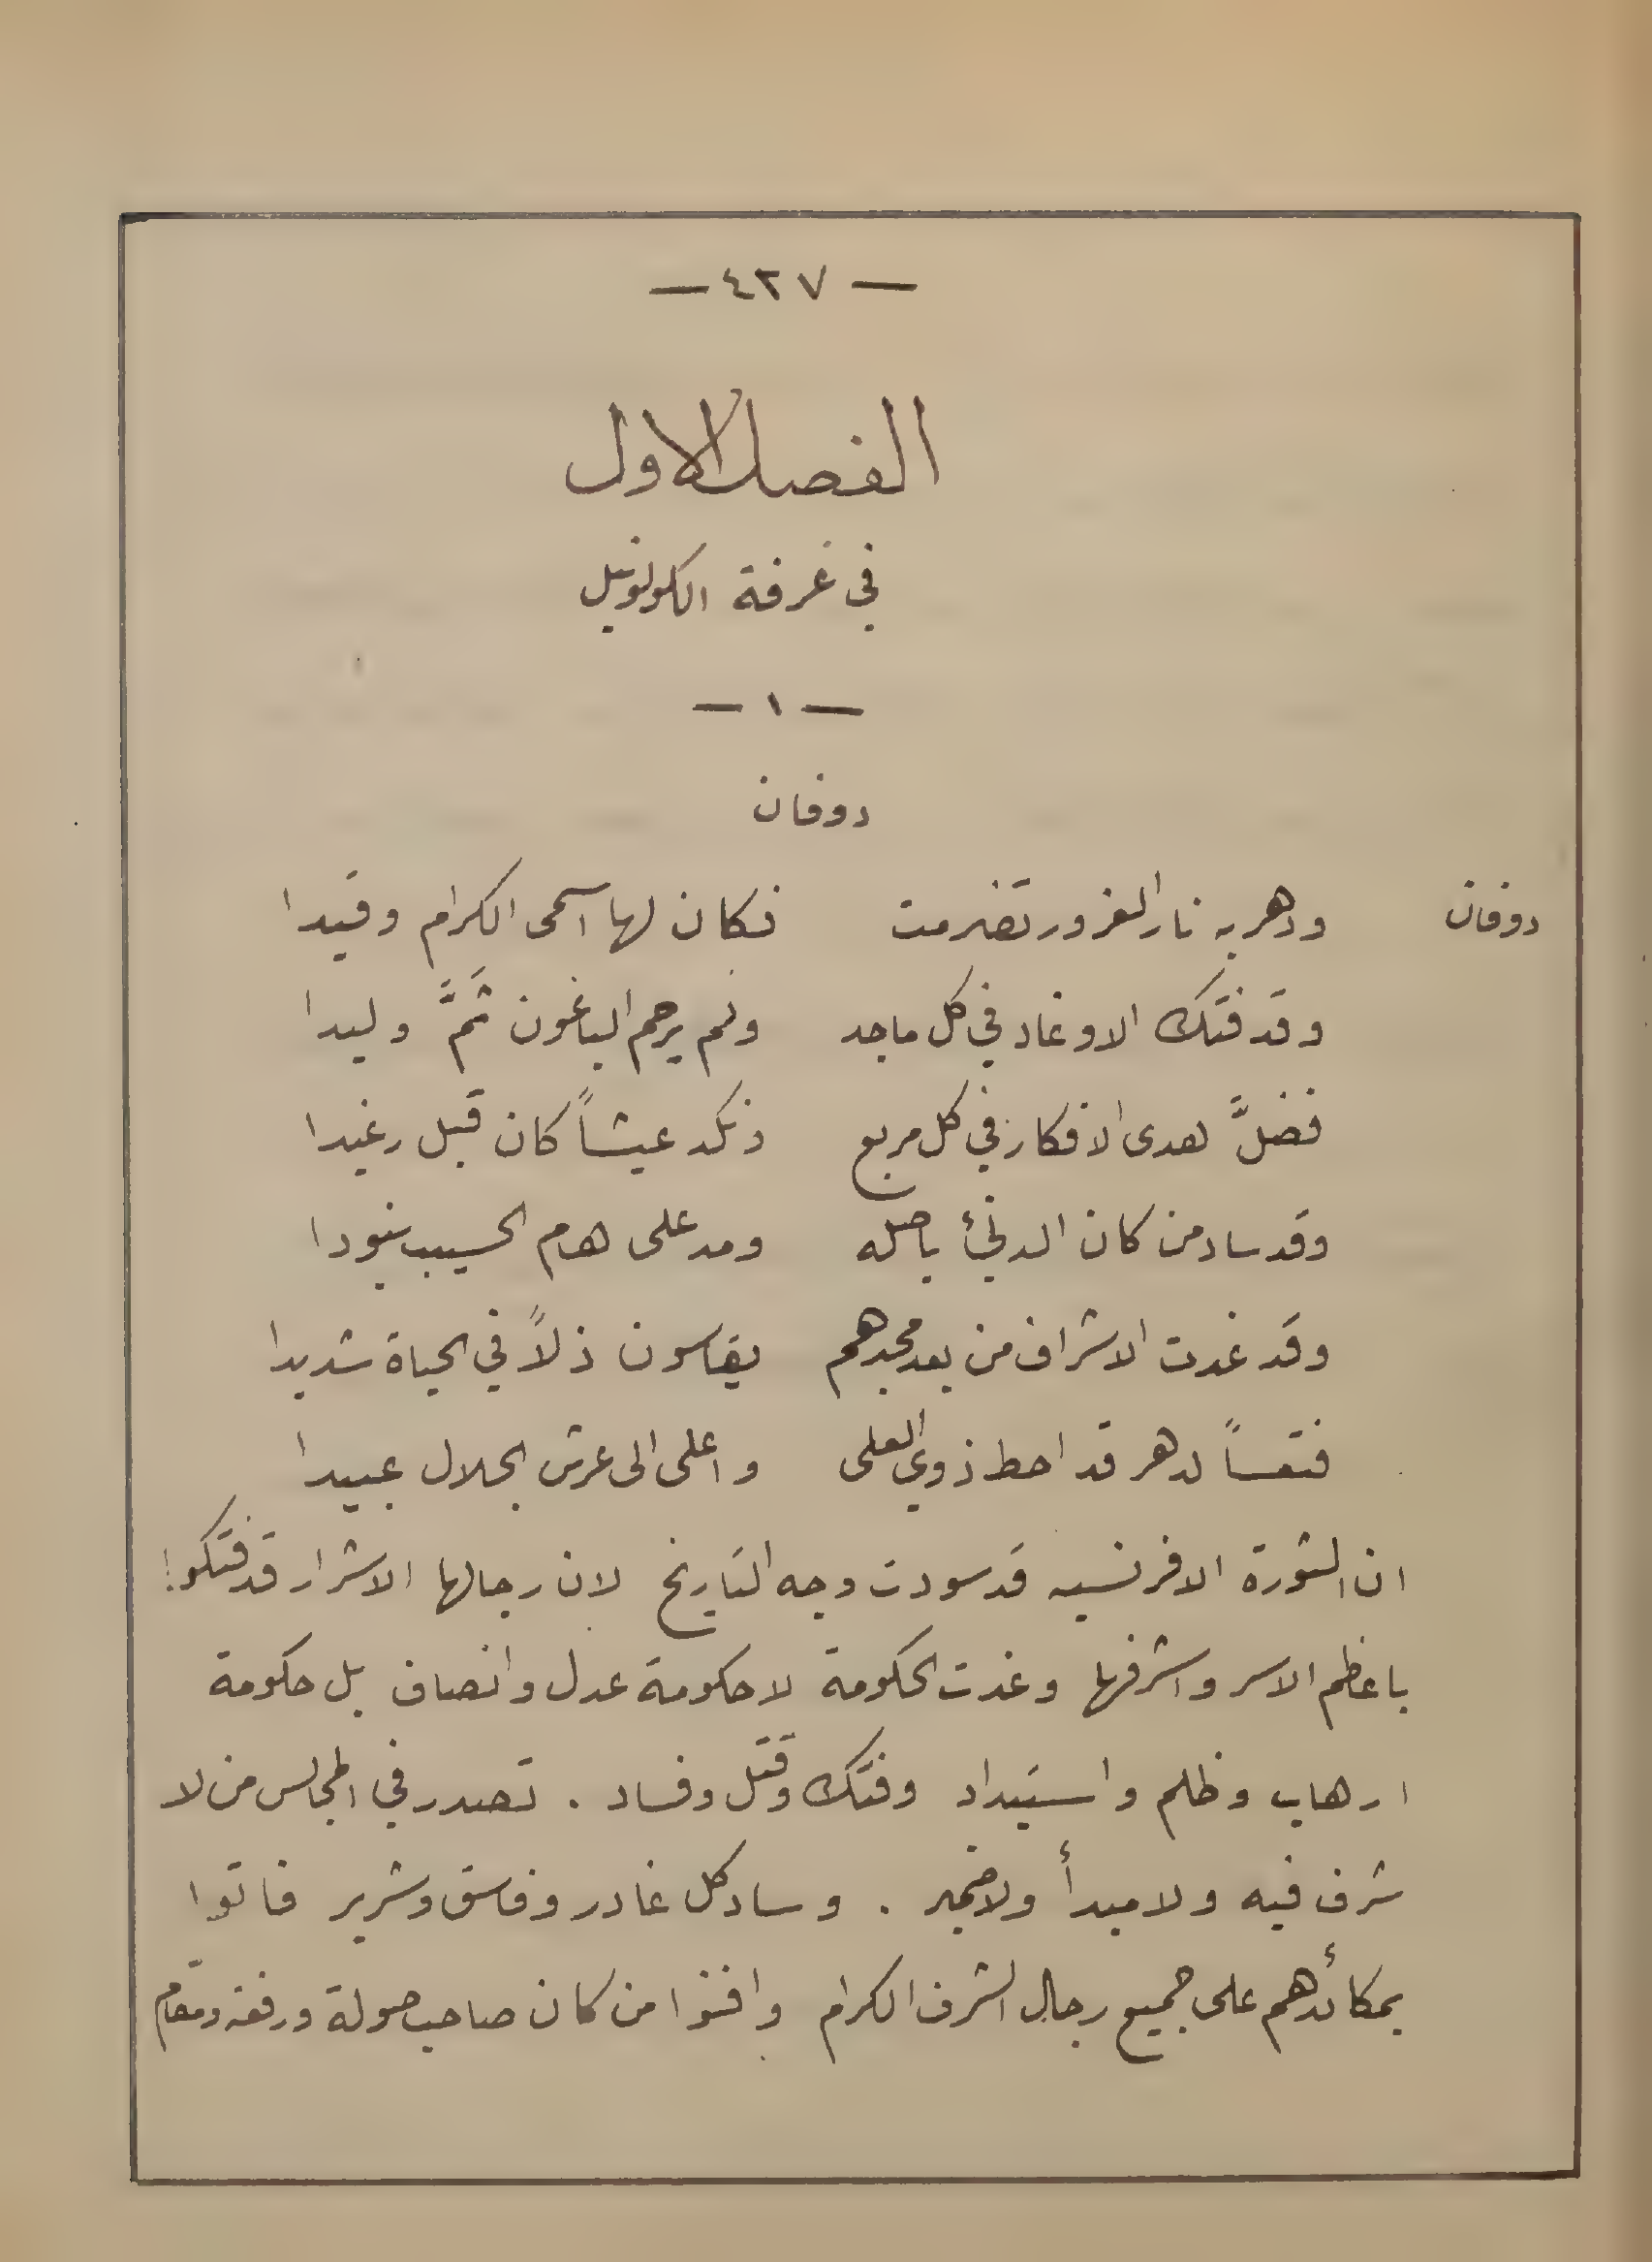 — ٤٢٧ —
الفصل الاول
في غرفة الكولونيل
— ١ —
دوفان
دوفان ودهر به نار الغرور تضرمت فكان لها اسمى الكرام وقيدا
وقد فتك الاوغاد في كل ماجد ولم يرحم الباغون ثَمَّ وليدا
فضلَّ هدى الافكار في كل مربع ونكد عيشاً كان قبل رغيدا
وقد ساد من كان الدنيُّ باصله ومد على هام الحسيب بنودا
وقد غدت الاشراف من بعد مجدهم يقاسون ذلاً في الحياة شديدا
فتعساً لدهر قد احط ذوي العلى واعلى الى عرش الجلال عبيدا
ان الثورة الافرنسيه قد سودت وجه التاريخ لان رجالها الاشرار قد فتكوا
باعظم الاسر واشرفها وغدت الحكومة لا حكومة عدل وانصاف بل حكومة
ارهاب وظلم واستبداد وفتك وقتل وفساد . تصدر في المجالس من لا
شرف فيه ولا مبدأ ولا ضمير . وساد كل غادر وفاسق وشرير فاتوا
بمكائدهم على جميع رجال الشرف الكرام وافنوا من كان صاحب صولة ورفعة ومقام